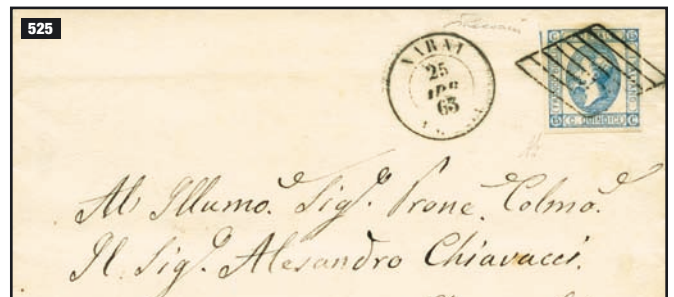 525
NARNI
25
APR
63
C. QUINDICI C.
Al Illumo. Sigr. Prone. Colmo.
Il Sigr. Alesandro Chiavacci.